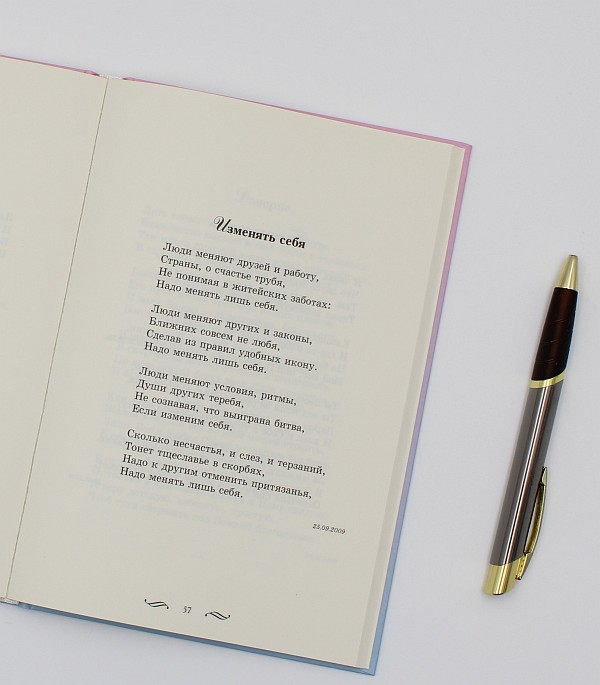 Изменять себя
Люди меняют друзей и работу,
Страны, о счастье трубя,
Не понимая в житейских заботах:
Надо менять лишь себя.
Люди меняют других и законы,
Ближних совсем не любя,
Сделав из правил удобных икону.
Надо менять лишь себя.
Люди меняют условия, ритмы,
Души других теребя,
Не сознавая, что выиграна битва,
Если изменим себя.
Сколько несчастья, и слез, и терзаний,
Тонет тщеславье в скорбях,
Надо к другим отменить притязанья,
Надо менять лишь себя.
25.09.2009
57